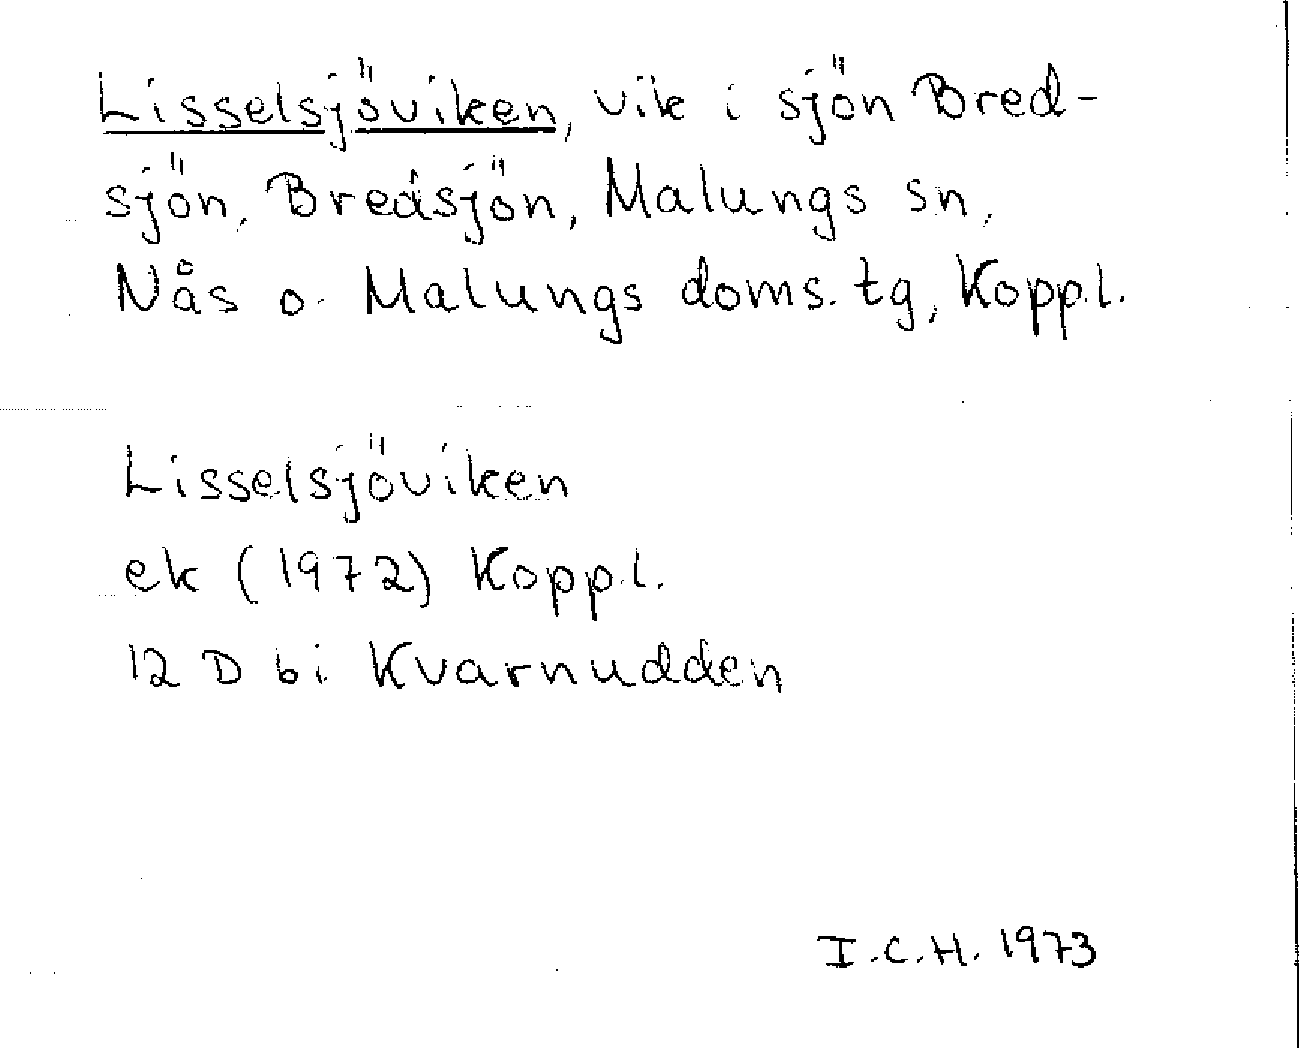 Lisselsjöviken, vik i sjön Bred-
sjön, Bredsjön, Malungs sn,
Nås o. Malungs doms. tg, Kopp.l.
Lisselsjöviken
ek (1972) Kopp.l.
12 D bi Kvarnudden
I.C.H. 1973